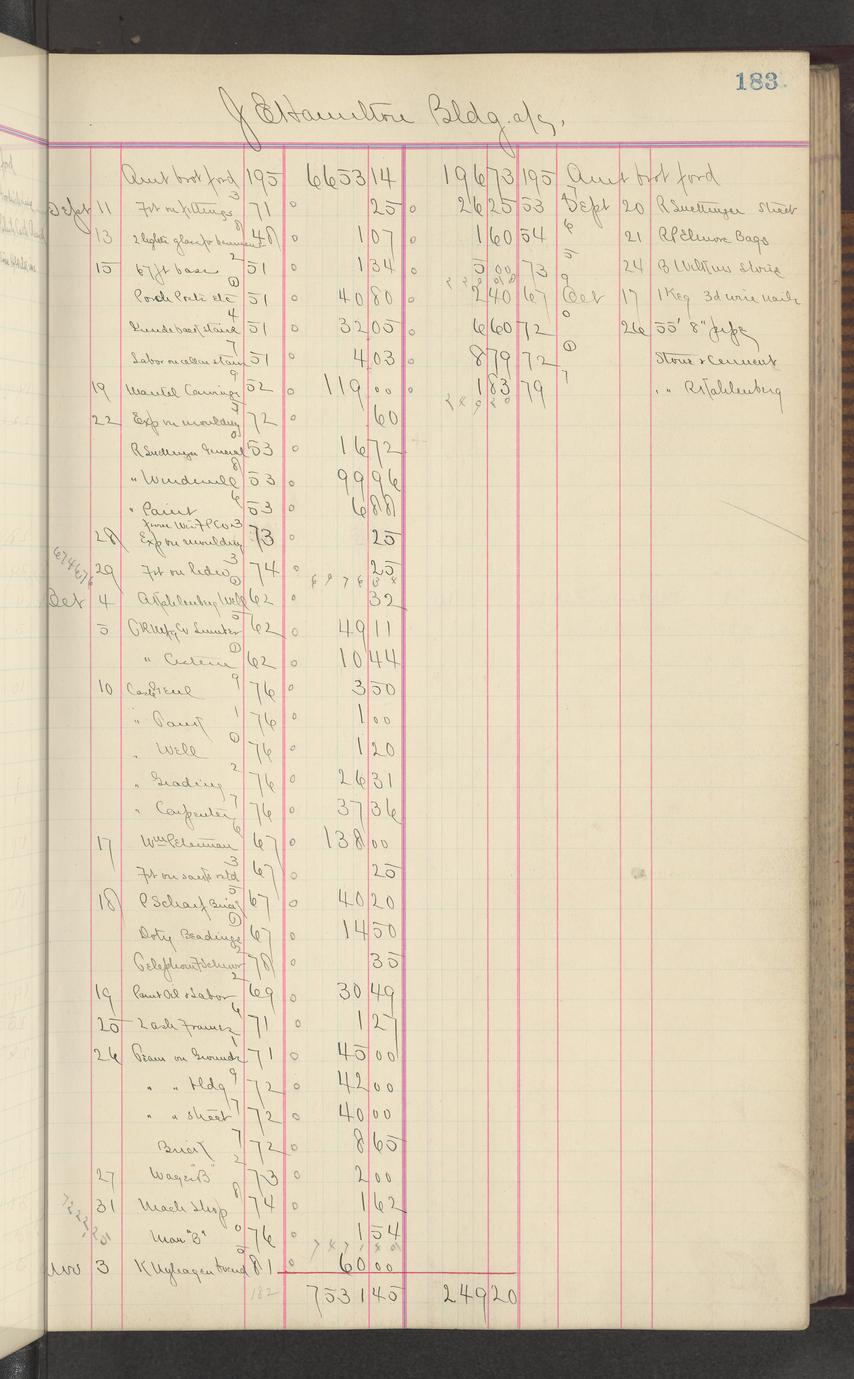 183
J E Hamilton Bldg. a/c,
Amt brot ford 195 6653 14 196 73 195 Amt brot ford
Sept 11 Frt on fittings 3 71 25 26 25 53 Sept 20 R Suettinger Street
13 2 lights glass for basement 8 48 1 07 1 60 54 21 R P Elmore Bags
15 67 ft base 2 51 1 34 5 00 73 24 B Wilkins Stone
Porch Posts etc 0 51 40 80 2 40 67 Oct 17 1 Keg 3d wire nails
4 51 32 05 6 60 72 26 55' 8" pipe
Labor on cellar stairs 7 51 4 03 8 79 72 Stone & Cement
19 Mantel Carvings 9 52 119 00 1 83 79 " " R Kahlenberg
22 Exp on moulding 72 60 249 20
R Suettinger General 0 53 16 72
" Windmill 8 53 99 96
" Paint 6 53 6 88
From
28 Exp on moulding 3 73 25
29 Frt on 3 74 25
6976 34
Oct 4 Kahlenberg Well 62 32
5 C R Mfg Co Lumber 5 62 49 11
" Cistern 62 10 44
10 Cash Genl 9 76 3 50
" Paint 1 76 1 00
" Well 0 76 1 20
" Grading 2 76 26 31
" Carpenter 7 76 37 36
17 Wm Peterman 6 67 138 00
Frt on retd 3 67 25
18 P Scharf Brick 5 67 40 20
Doty Beadings 0 67 14 50
Telephone 78 35
19 Paint Oil & Labor 2 69 30 49
25 Sash Frames 6 71 1 27
26 Team on Grounds 1 71 45 00
" " Bldg 9 72 42 00
" " Street 7 72 40 00
Brick 7 72 8 65
27 Wages "B" 2 73 2 00
31 Mach Shop 8 74 1 62
Man "B" 0 76 1 54
Nov 3 K Nyhagen 5 81 60 00
182 7531 45 249 20